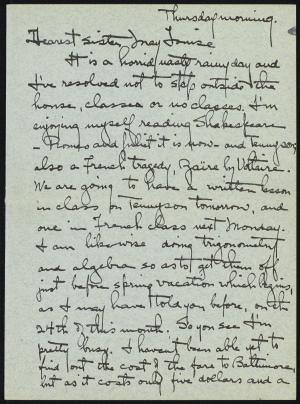 Thursday morning.
Dearest sister Inez Louise
It is a horrid nasty rainy day and
I've resolved not to step outside the
house, classes or no classes. I'm
enjoying myself reading Shakespeare
- Romeo and Juliet it is now - and Tennyson,
also a French tragedy, Zaïre by Voltaire.
We are going to have a written lesson
in class on Tennyson tomorrow, and
one in French class next Monday.
I am likewise doing trigonometry
and algebra so as to get them off
just before spring vacation which begins,
as I may have told you before, on the
24th of this month. So you see I'm
pretty busy. I haven't been able yet to
find out the cost of the fare to Baltimore,
but as it costs only five dollars and a